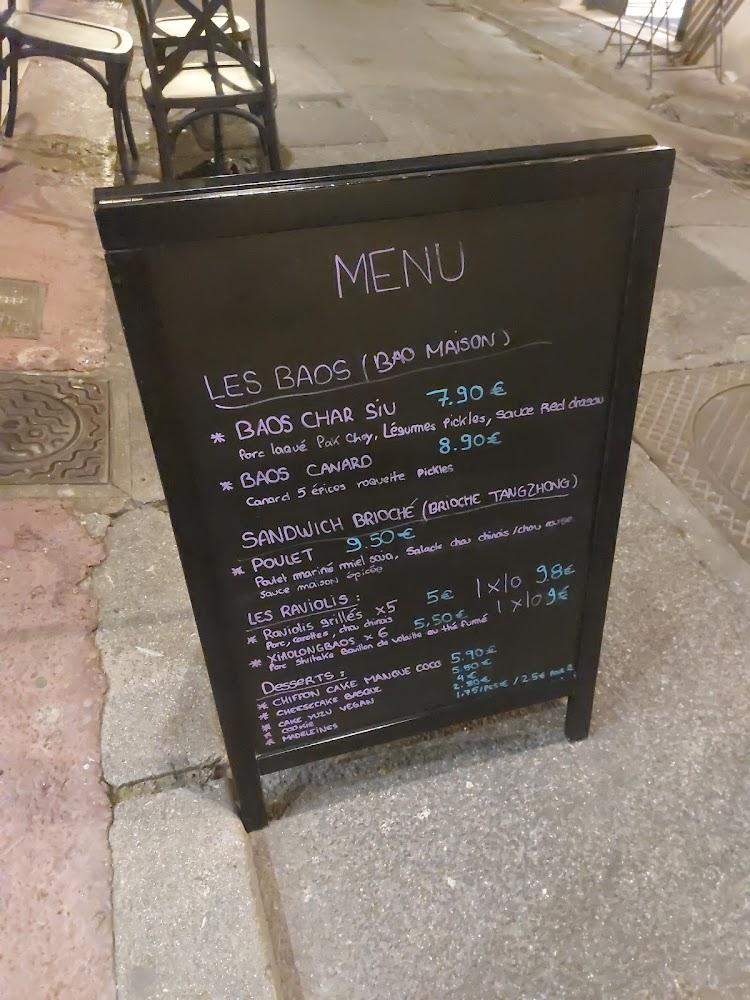 MENU
LES BAOS (BAO MAISON)
* BAOS CHAR SIU 7.90 €
Porc laqué Pak Choy, Légumes Pickles, Sauce Red dragon
* BAOS CANARD 8.90€
Canard 5 épices roquette pickles
SANDWICH BRIOCHÉ (BRIOCHE TANGZHONG)
* POULET 9.50€
Poulet mariné miel soja, Salade chou chinois /chou rouge
Sauce maison épicée
LES RAVIOLIS :
* Raviolis grillés x5 5€ 1x10
Porc, carottes, chou chinois
* XIAOLONGBAOS x 6 5,50€ 1x10 9€
Porc Shiitake Bouillon de volaille au thé fumé
Desserts :
* CHIFFON CAKE MANGUE COCO 5.90€
* CHEESECAKE BASQUE 5.50€
* CAKE YUZU VEGAN 4€
* COOKIE
* MADELEINES